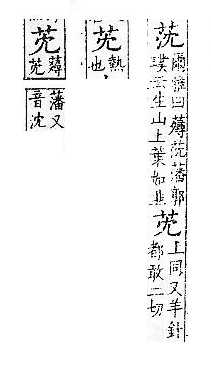 莐
爾雅曰蕁莐藩郭
璞云生山上葉如韭
上同又羊針
都敢二切
熱
也
藩又
音沈